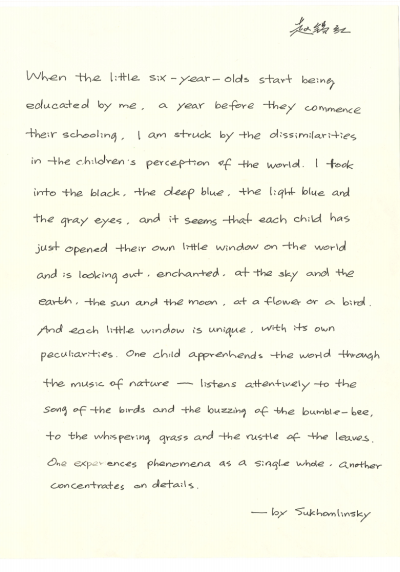 When the little six-year-olds start being
educated by me, a year before they commence
their schooling, I am struck by the dissimilarities
in the children's perception of the world. I took
into the black, the deep blue, the light blue and
the gray eyes, and it seems that each child has
just opened their own little window on the world
and is looking out, enchanted, at the sky and the
earth, the sun and the moon, at a flower or a bird.
And each little window is unique, with its own
peculiarities. One child apprenhends the world through
the music of nature — listens attentively to the
song of the birds and the buzzing of the bumble-bee,
to the whispering grass and the rustle of the leaves.
One experiences phenomena as a single whole, another
concentrates on details.
— by Sukhomlinsky